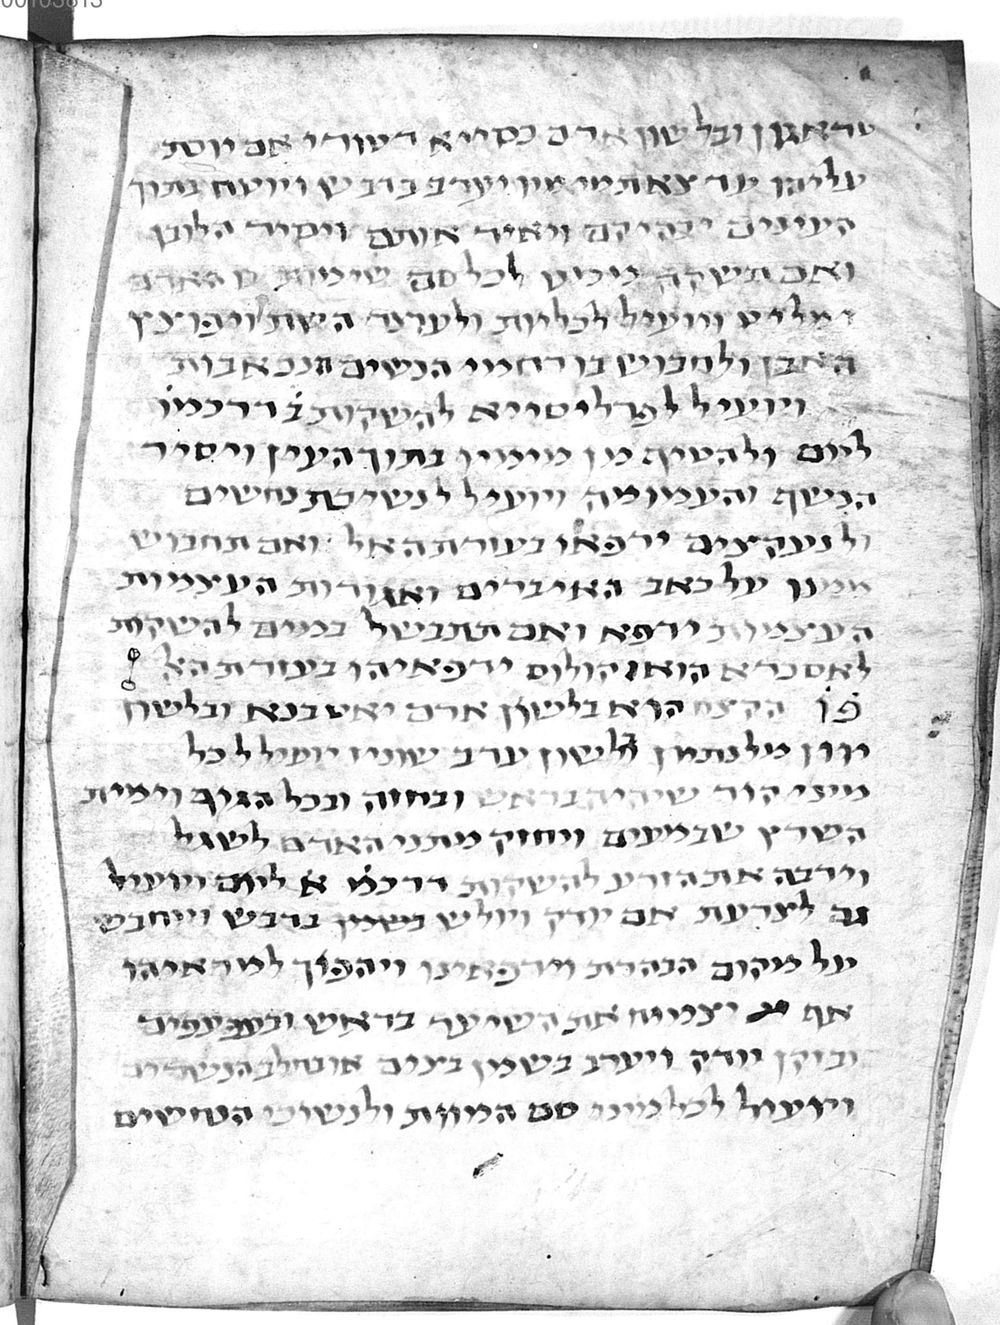 טראגון ובלשון ארם כסייא דשורי אם יוסק
עליהן עד צאת מימיו ויערב בדבש ויועח בתוך
העינים יגהיהם ויאיר אותם ויסיר הלובן
ואם תשקה מימיו לכל סם שימות האדם
ימליט ויועיל לכליות ולעוצר השת ויפוצץ
האבן ולחבוש בו רחמי הנשים הנכאבות
ויועיל לפרליסייא להשקות ב דרכמו
ליום ולהטיף מן מימיו בתוך העין ויסיר
הנשף והעמומה ויועיל לנשיכת נחשים
ולנעקצים ירפאו בעזרת האל ואם תחבוש
ממנו על כאב האיברים ואגודות העצמות
העצמות ירפא ואם תתבשל במים להשקות
לאסכרא הוא קולוס ירפאיהו בעזרת האל
פו הקצח הוא בלשון ארם יאט בנא ובלשון
יוון מלנתמן בלשון ערב שוניז יועיל לכל
מיני קור שיהיה בראש ובחזה ובכל הגוף וימית
השרץ שבמעים ויחזק מתני האדם לשגל
וירבה את הזרע להשקות דרכמ א ליום ויועיל
גם לצרעת אם יודק ויולש בשמן בדבש וייחבש
על מקום הבהרת וירפאינו ויהפוך למראיהו
אף יצמיח את השיער בראש ובעפעפים
ובזקן יודק ויערב בשמן ביצים או בחלב הנשרים
ויועיל לכל מיני סם המוות ולנשוכי הנחשים